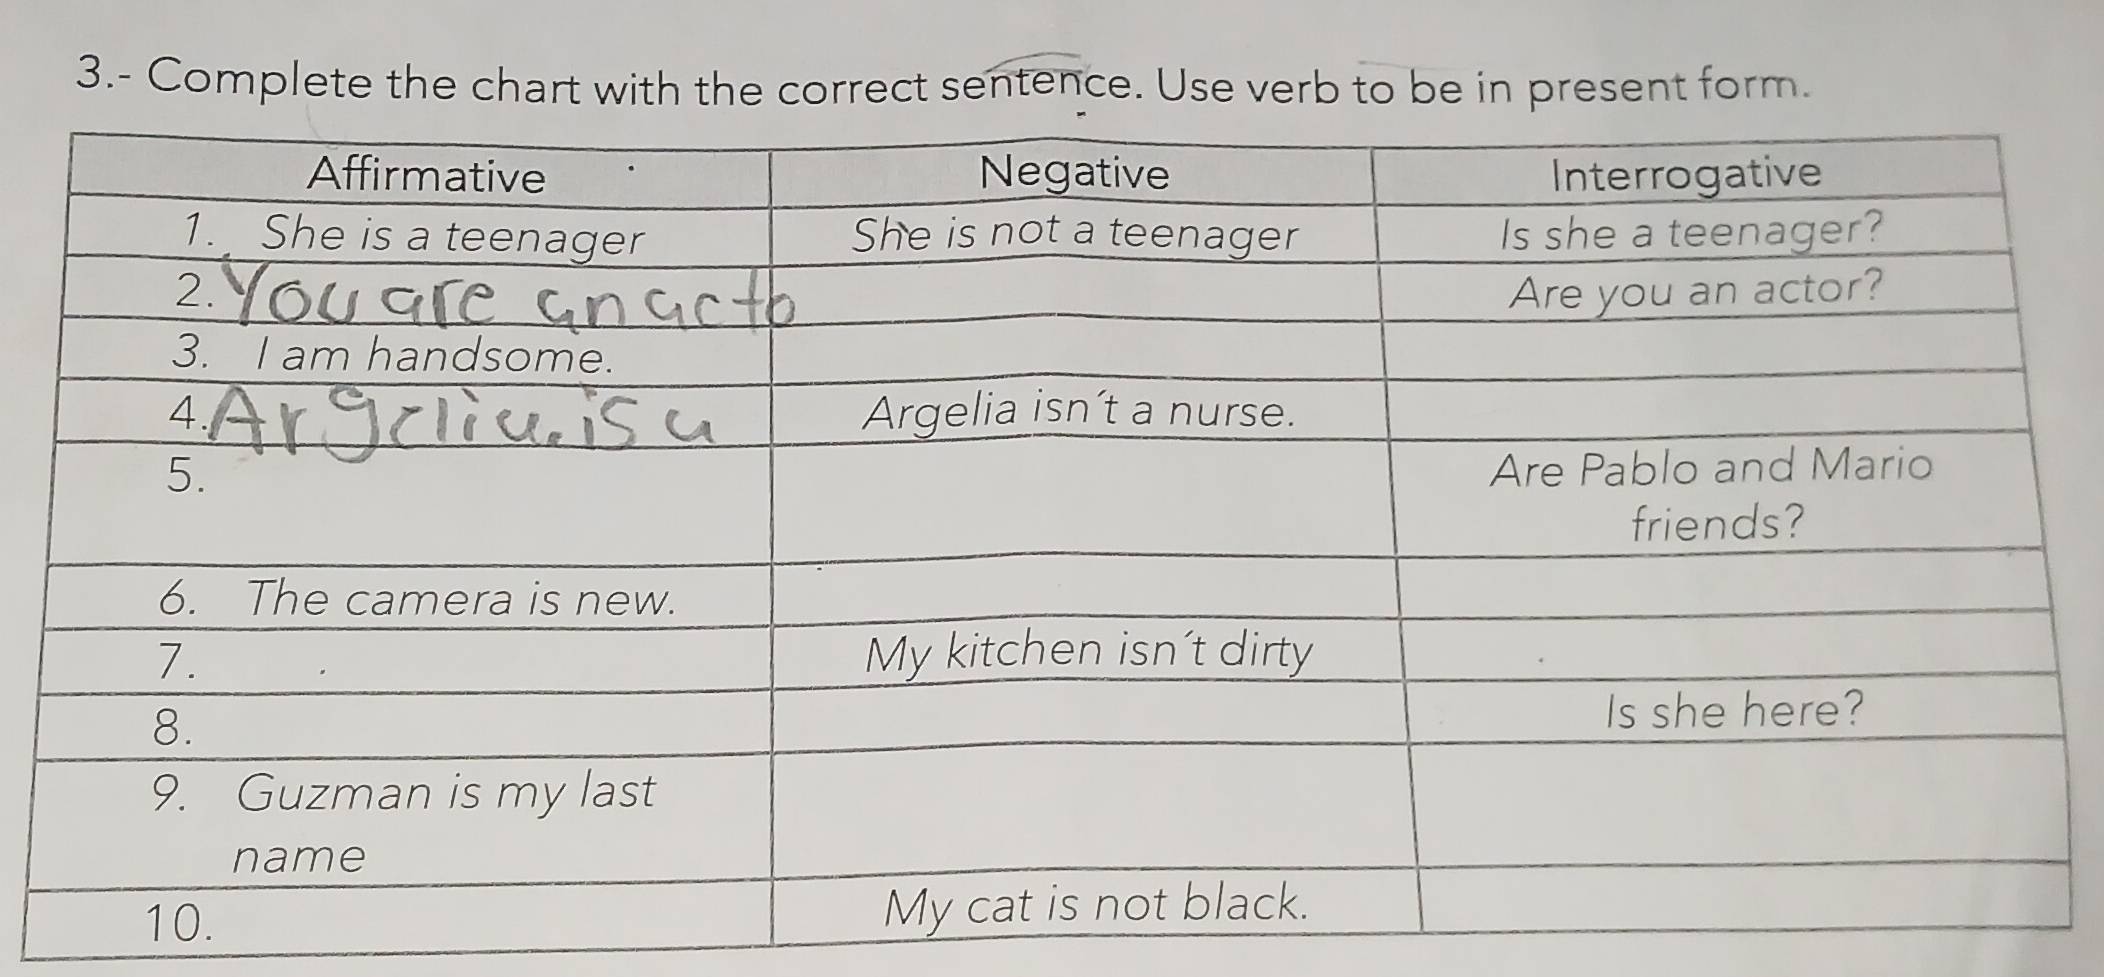 3.- Complete the chart with the correct sentence. Use verb to be in present form.
Affirmative Negative Interrogative
1. She is a teenager She is not a teenager Is she a teenager?
2. You are an acto Are you an actor?
3. I am handsome.
4. Argelia is a Argelia isn´t a nurse.
5. Are Pablo and Mario
friends?
6. The camera is new.
7. My kitchen isn´t dirty
8. Is she here?
9. Guzman is my last
name
10. My cat is not black.